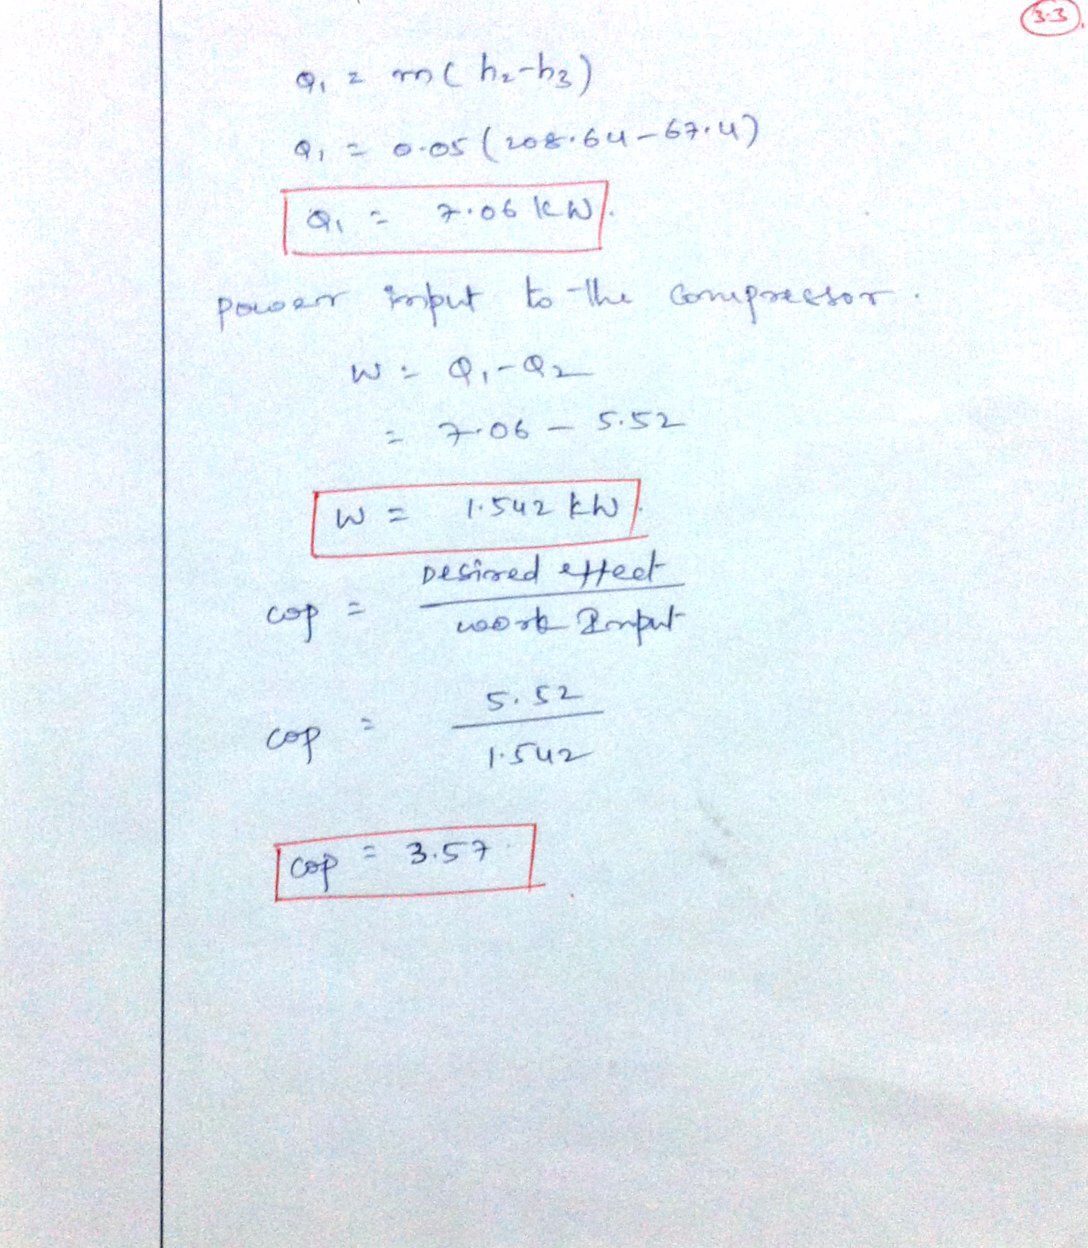 3.3
Q₁ = m(h₂-h₃)
Q₁ = 0.05(208.64-67.4)
Q₁ = 7.06 kW.
power input to the compressor.
W = Q₁-Q₂
= 7.06 - 5.52
W = 1.542 kW.
COP = Desired effect
work Input
COP = 5.52
1.542
COP = 3.57